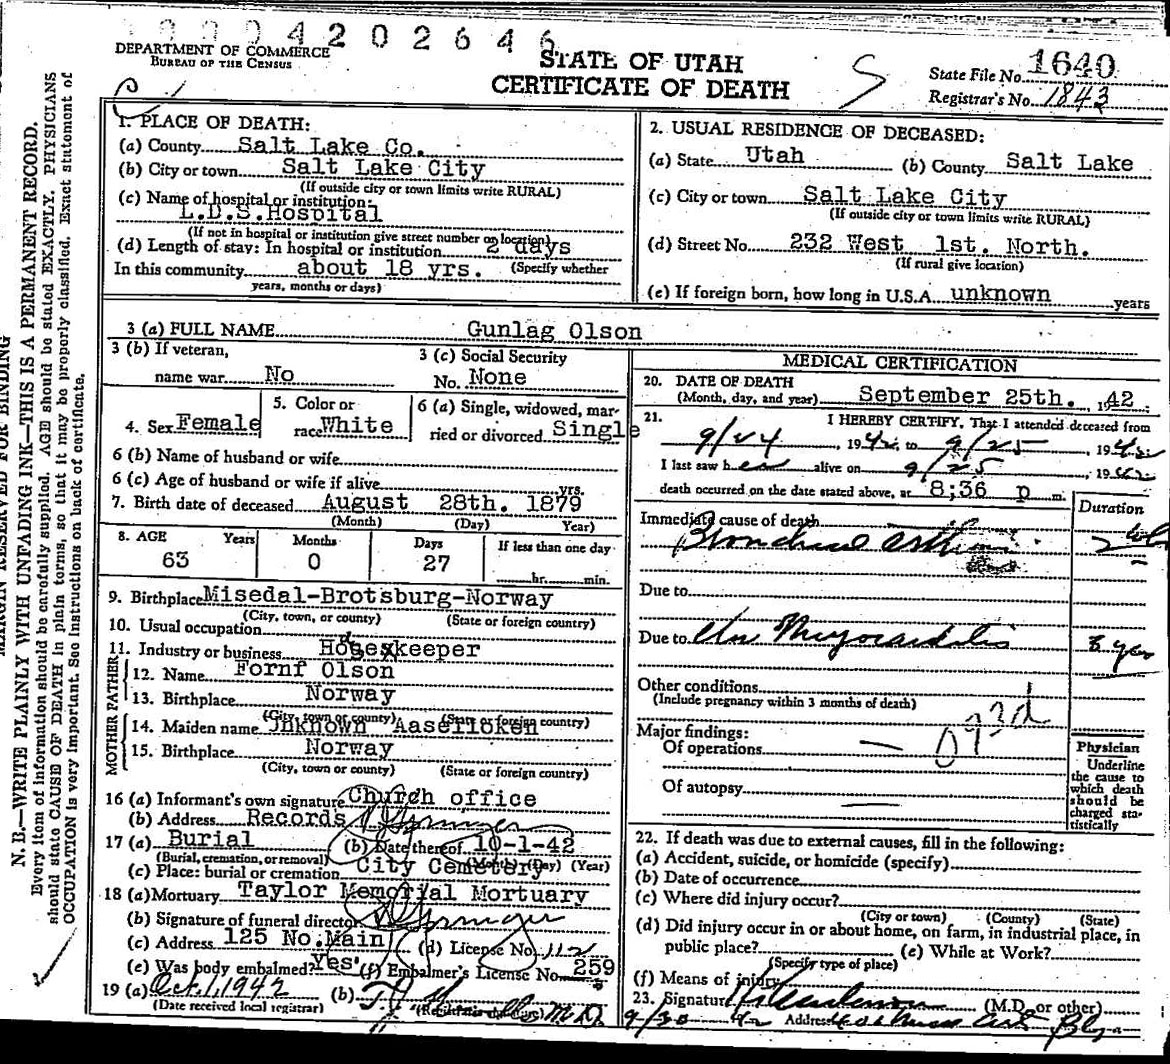 4202646
DEPARTMENT OF COMMERCE
BUREAU OF THE CENSUS
STATE OF UTAH
CERTIFICATE OF DEATH
S
State File No. 1640
Registrar's No. 1843
MARGIN RESERVED FOR BINDING
N. B.—WRITE PLAINLY WITH UNFADING INK—THIS IS A PERMANENT RECORD.
Every item of information should be carefully supplied. AGE should be stated EXACTLY. PHYSICIANS
should state CAUSE OF DEATH in plain terms, so that it may be properly classified. Exact statement of
OCCUPATION is very important. See Instructions on back of certificate.
1. PLACE OF DEATH:
(a) County Salt Lake Co.
(b) City or town Salt Lake City
(If outside city or town limits write RURAL)
(c) Name of hospital or institution:
L.D.S.Hospital
(If not in hospital or institution give street number or location)
(d) Length of stay: In hospital or institution 2 days
In this community about 18 yrs. (Specify whether
years, months or days)
2. USUAL RESIDENCE OF DECEASED:
(a) State Utah (b) County Salt Lake
(c) City or town Salt Lake City
(If outside city or town limits write RURAL)
(d) Street No. 232 West 1st. North.
(If rural give location)
(e) If foreign born, how long in U.S.A. unknown years
3 (a) FULL NAME Gunlag Olson
3 (b) If veteran,
name war No
3 (c) Social Security
No. None
4. Sex Female
5. Color or
race White
6 (a) Single, widowed, mar-
ried or divorced Single
6 (b) Name of husband or wife
6 (c) Age of husband or wife if alive yrs.
7. Birth date of deceased August 28th. 1879
(Month) (Day) Year)
8. AGE Years Months Days If less than one day
63 0 27
hr. min.
9. Birthplace Misedal-Brotsburg-Norway
(City, town, or county) (State or foreign country)
10. Usual occupation
11. Industry or business Housekeeper
FATHER
12. Name Fornf Olson
13. Birthplace Norway
(City, town or county) (State or foreign country)
MOTHER
14. Maiden name Unknown Aaserloken
15. Birthplace Norway
(City, town or county) (State or foreign country)
16 (a) Informant's own signature Church office
(b) Address Records
17 (a) Burial (b) Date thereof 10-1-42
(Burial, cremation, or removal) (Month) (Day) (Year)
(c) Place: burial or cremation City Cemetery
18 (a) Mortuary Taylor Memorial Mortuary
(b) Signature of funeral director
(c) Address 125 No.Main (d) License No. 112
(e) Was body embalmed? Yes (f) Embalmer's License No. 259
19 (a) Oct. 1, 1942 (b) M.D.
(Date received local registrar) (Registrar's signature)
MEDICAL CERTIFICATION
20. DATE OF DEATH
(Month, day, and year) September 25th. 1942
21. I HEREBY CERTIFY, That I attended deceased from
9/24 1942 to 9/25, 1942
I last saw her alive on 9/25 1942
death occurred on the date stated above, at 8;36 p m.
Duration
Immediate cause of death
Bronchial Asthma
Due to
Due to Chr Myocarditis 8 yrs
Other conditions
(Include pregnancy within 3 months of death)
093d
Major findings:
Of operations —
Of autopsy —
Physician
Underline
the cause to
which death
should be
charged sta-
tistically
22. If death was due to external causes, fill in the following:
(a) Accident, suicide, or homicide (specify)
(b) Date of occurrence
(c) Where did injury occur?
(City or town) (County) (State)
(d) Did injury occur in or about home, on farm, in industrial place, in
public place? (e) While at Work?
(Specify type of place)
(f) Means of injury
23. Signature (M.D. or other)
9/30 42 Address